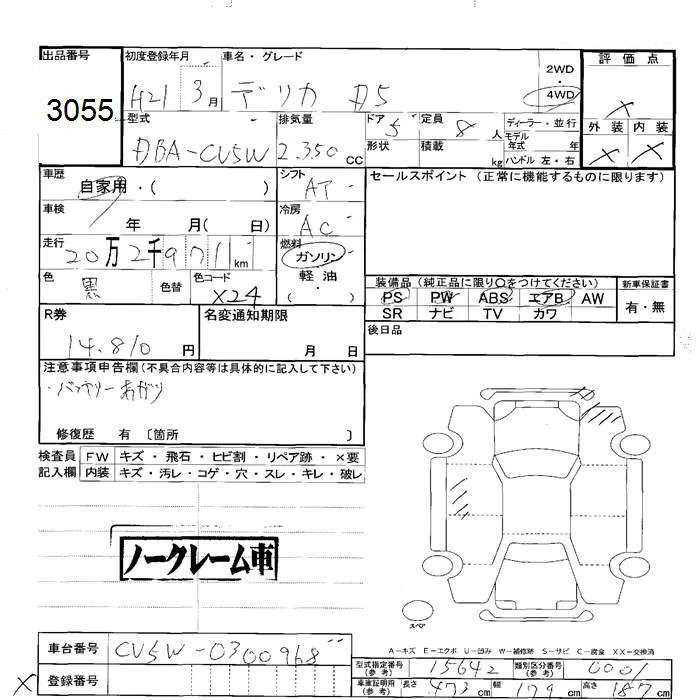 出品番号 初度登録年月 車名・グレード 評価点
3055 H21 3月 デリカ D5 2WD 4WD ×
型式 排気量 ドア 5 定員 8人 ディーラー・並行 外装 内装
DBA-CV5W 2.350cc 形状 積載 kg モデル年式 年 ハンドル 左・右 × ×
車歴 自家用・( ) シフト AT セールスポイント (正常に機能するものに限ります)
車検 年 月( 日) 冷房 AC
走行 20万2千971km 燃料 ガソリン
色 黒 色替 色コード X24 軽油 ( ・ )
装備品 (純正品に限り○をつけてください) 新車保証書
PS PW ABS エアB AW 有・無
SR ナビ TV カワ
R券 名変通知期限 後日品
14.810円 月 日
注意事項申告欄 (不具合内容等は具体的に記入して下さい)
・バッテリーあがり
修復歴 有 〔箇所 〕
検査員 FW キズ・飛石・ヒビ割・リペア跡・×要
記入欄 内装 キズ・汚レ・コゲ・穴・スレ・キレ・破レ
ノークレーム車
スペア
A-キズ E-エクボ U-凹み W-補修跡 S-サビ C-腐食 XX-交換済
車台番号 CV5W-0300968
型式指定番号(参考) 15642 類別区分番号(参考) 0001
× 登録番号
車庫証明用(参考) 長さ 473cm 幅 179cm 高さ 187cm